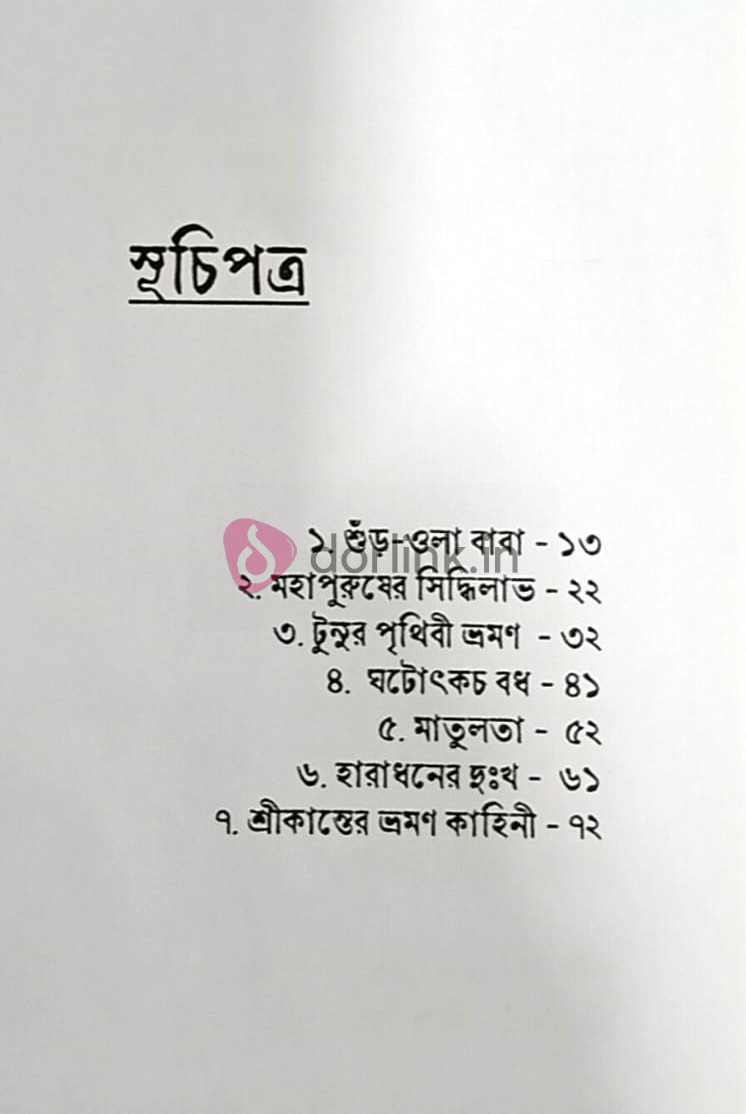 সূচিপত্র
১. শুঁড়-ওলা বাবা - ১৩
dorlink.in
২. মহাপুরুষের সিদ্ধিলাভ - ২২
৩. টুনুর পৃথিবী ভ্রমণ - ৩২
৪. ঘটোৎকচ বধ - ৪১
৫. মাতুলতা - ৫২
৬. হারাধনের দুঃখ - ৬১
৭. শ্রীকান্তের ভ্রমণ কাহিনী - ৭২